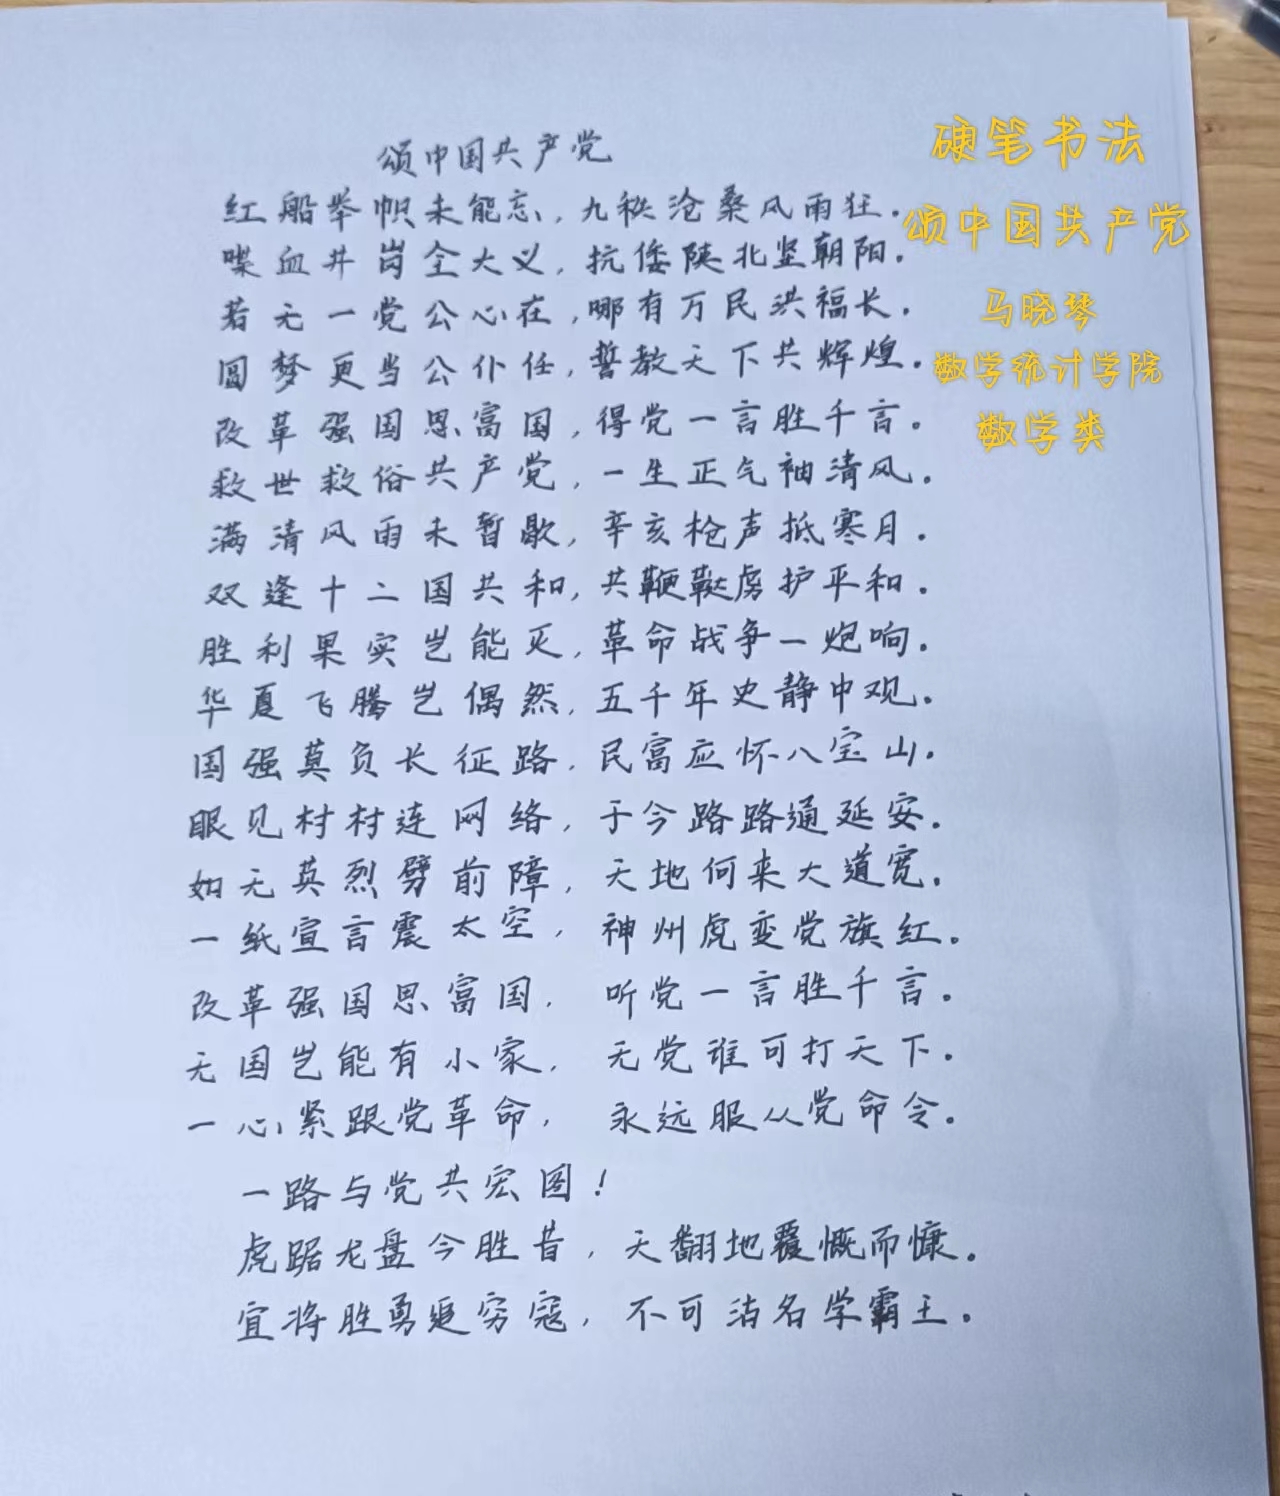 颂中国共产党
红船举帜未能忘,九秩沧桑风雨狂.
喋血井岗全大义,抗倭陕北坚朝阳.
若无一党公心在,哪有万民洪福长.
圆梦更当公仆任,誓教天下共辉煌.
改革强国思富国,得党一言胜千言.
救世救俗共产党,一生正气袖清风.
满清风雨未暂歇,辛亥枪声抵寒月.
双逢十二国共和,共鞭鞑虏护平和.
胜利果实岂能灭,革命战争一炮响.
华夏飞腾岂偶然,五千年史静中观.
国强莫负长征路,民富应怀八宝山.
眼见村村连网络,于今路路通延安.
如无英烈劈前障,天地何来大道宽.
一纸宣言震太空,神州虎变党旗红.
改革强国思富国,听党一言胜千言.
无国岂能有小家,无党谁可打天下.
一心紧跟党革命,永远服从党命令.
一路与党共宏图!
虎踞龙盘今胜昔,天翻地覆慨而慷.
宜将胜勇追穷寇,不可沽名学霸王.
硬笔书法
颂中国共产党
马晓琴
数学统计学院
数学类